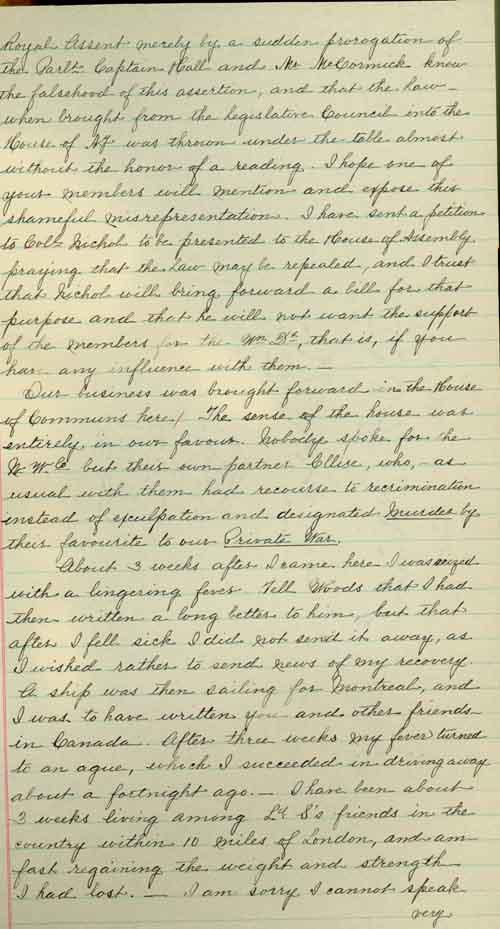 Royal Assent merely by a sudden prorogation of
the Parlt. Captain Hall and Mr McCormick know
the falsehood of this assertion, and that the Law
when brought from the legislative Council into the
House of A was thrown under the table almost
without the honor of a reading. I hope one of
your members will mention and expose this
shameful misrepresentation. I have sent a petition
to Colt Nichol to be presented to the House of Assembly
praying that the Law may be repealed, and I trust
that Nichol will bring forward a bill for that
purpose and that he will not want the support
of the members for the Wn Dt, that is, if you
have any influence with them. —
Our business was brought forward in the House
of Communs here / The sense of the house was
entirely in our favour. Nobody spoke for the
N. W. Co but their own partner Ellise, who, - as
usual with them had recourse to recrimination
instead of exculpation and designated Murder by
their favourite to our Private War.
About 3 weeks after I came here I was seized
with a lingering fever Tell Woods that I had
then written a long letter to him, but that
after I fell sick I did not send it away, as
I wished rather to send news of my recovery.
A ship was then sailing for Montreal, and
I was to have written you and other friends
in Canada. After three weeks my fever turned
to an ague, which I succeeded in driving away
about a fortnight ago. — I have been about
3 weeks living among Ld S's friends in the
country within 10 miles of London, and am
fast regaining the weight and strength
I had lost. — I am sorry I cannot speak
very